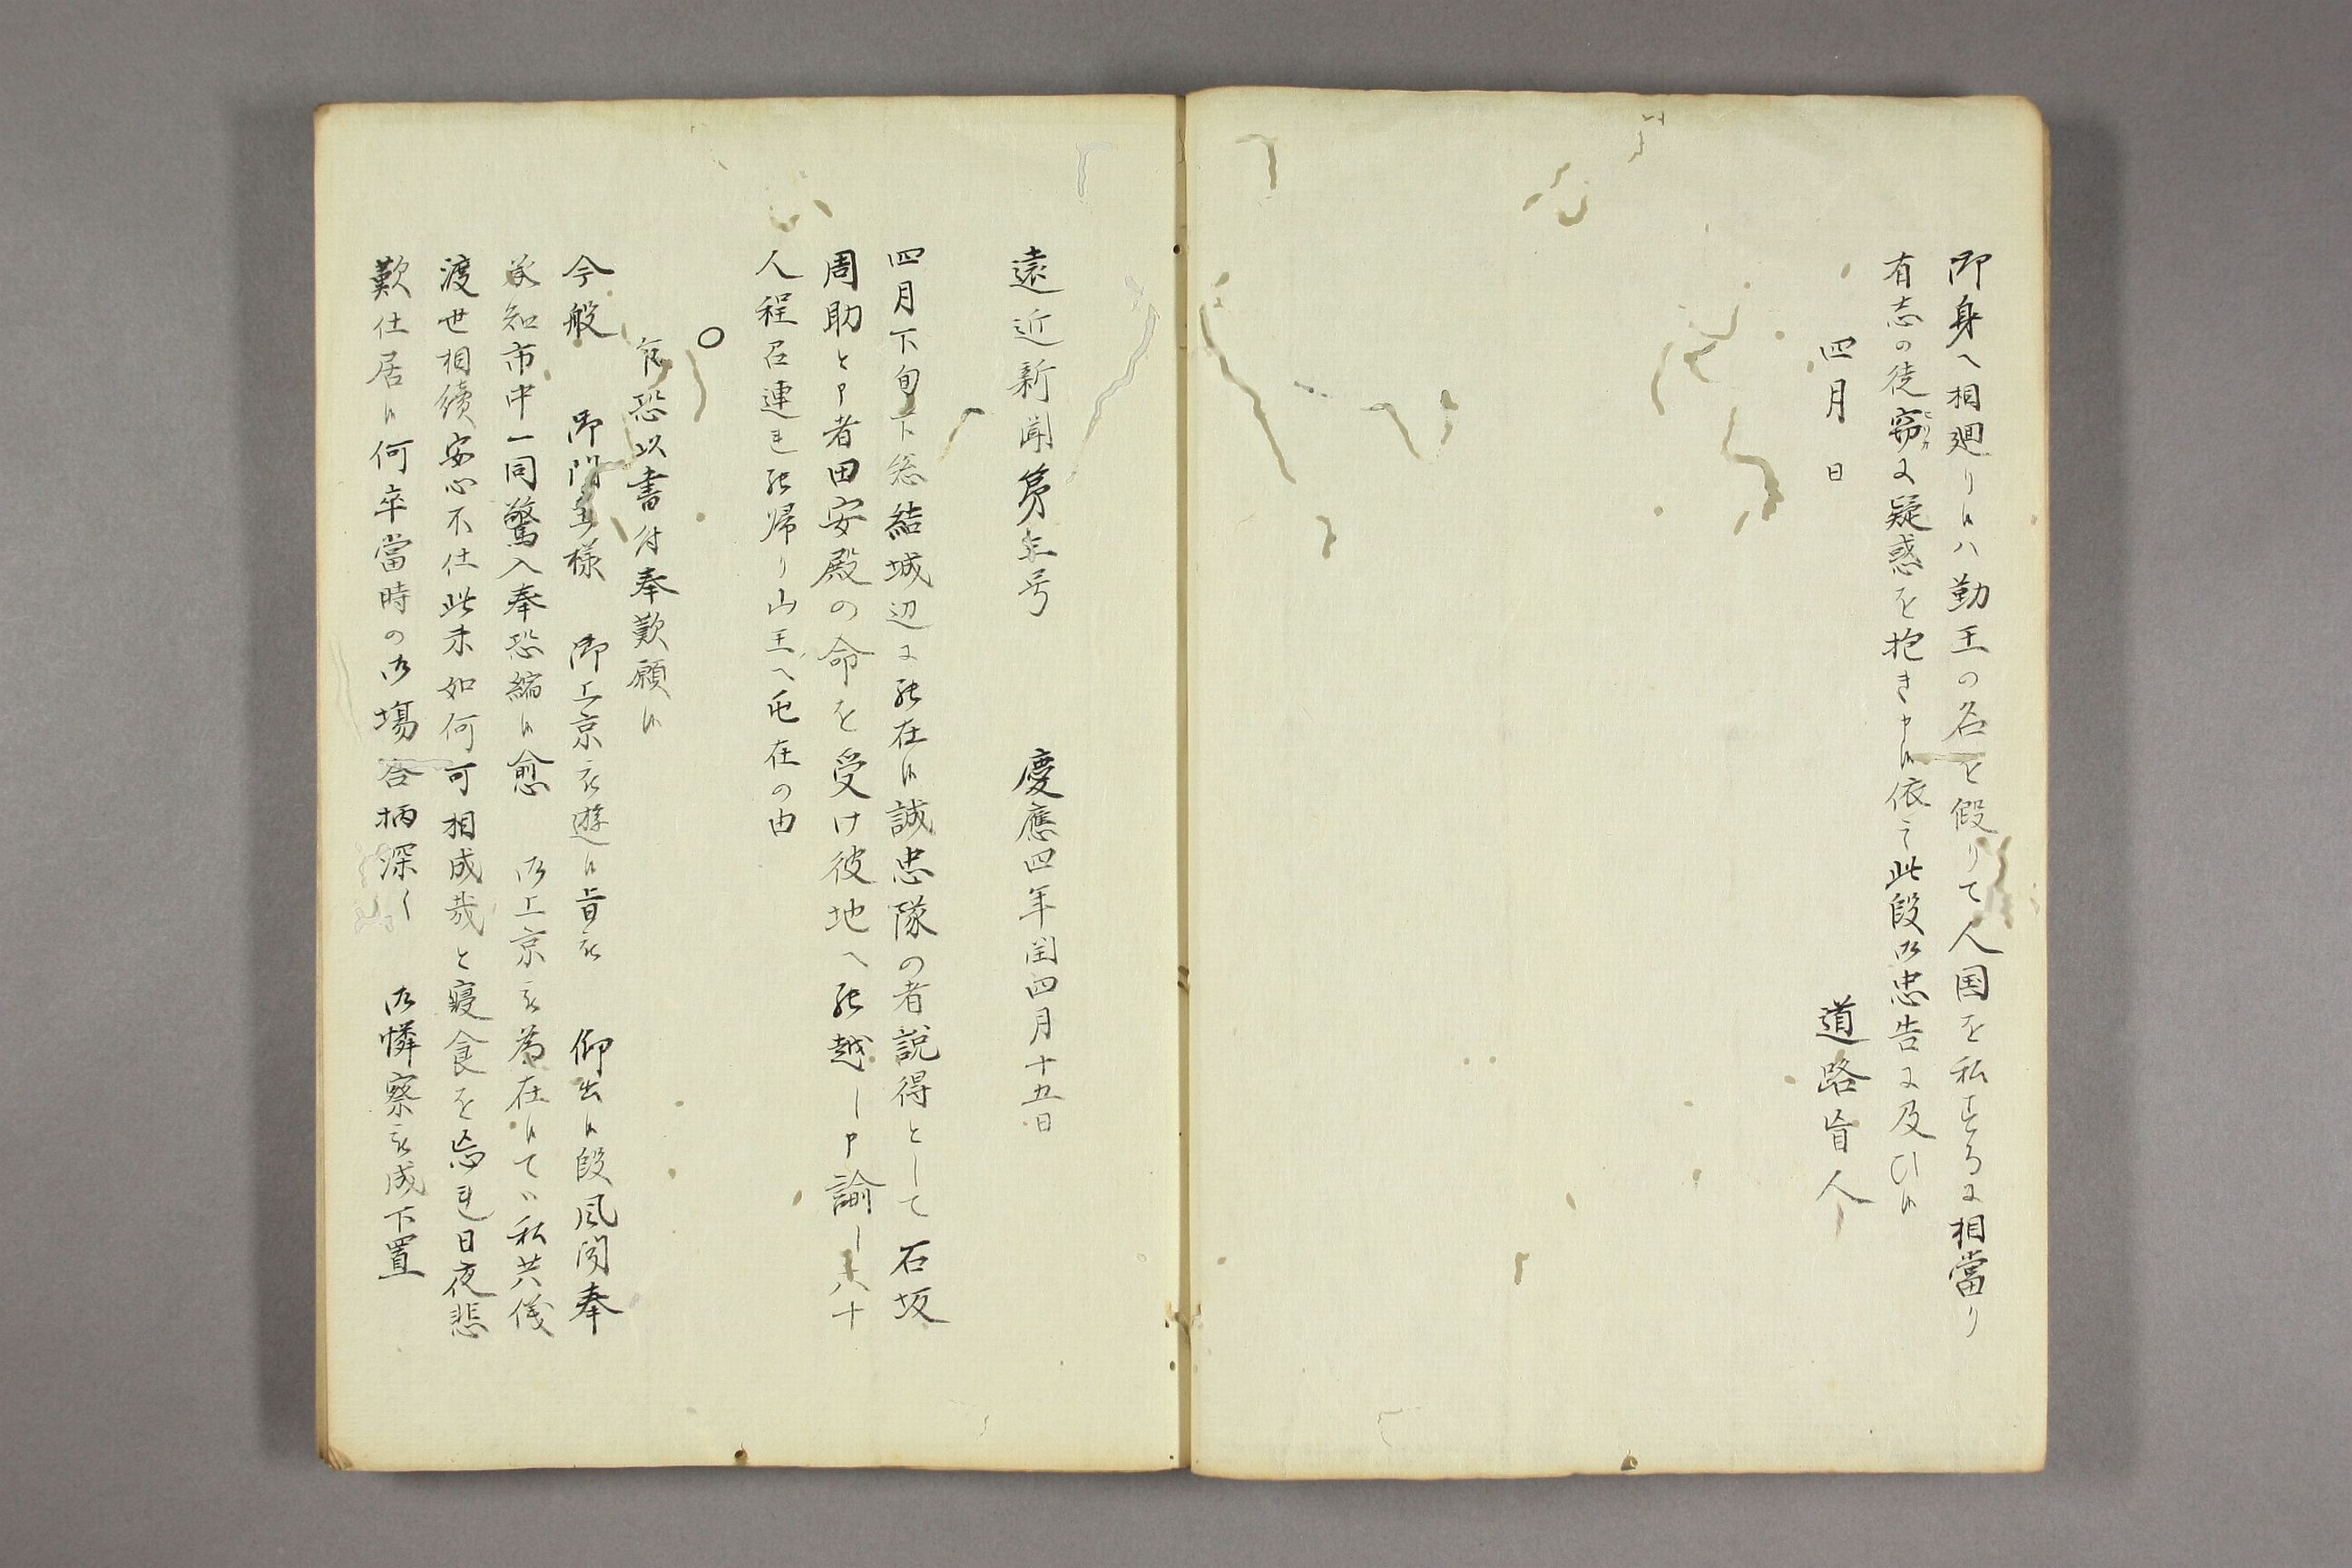 御身へ相廻り候ハ勤王の名を假りて人国を私するに相當り
有志の徒竊に疑惑を抱き申候依之此段御忠告に及ひ候
四月 日
道路盲人
遠近新聞第　号 慶應四年閏四月十五日
四月下旬下总結城辺に罷在候誠忠隊の者説得として石坂
周助と申者田安殿の命を受け彼地へ罷越し申諭し　八十
人程召連れ罷帰り山王へ屯在の由
○
乍恐以書付奉歎願候
今般 御門主様 御上京被遊候旨被 仰出候段風聞奉
承知市中一同驚入奉恐縮候愈 御上京被為在候てハ私共儀
渡世相續安心不仕此末如何可相成哉と寝食を忘れ日夜悲
歎仕居候何卒當時の御場合柄深く 御憐察被成下置